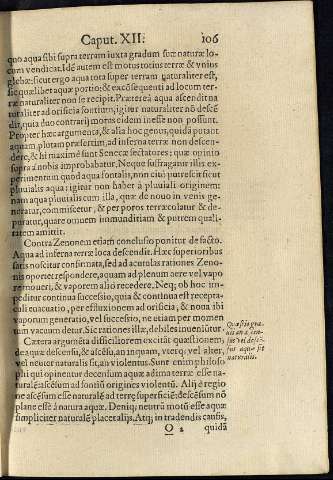 Caput. XII. 106
quo aqua sibi supra terram iuxta gradum suæ naturæ lo-
cum vendicat. Idẽ autem est motus totius terræ & vnius
glebæ: sicut ergo aqua tota super terram naturaliter est,
sic quælibet aquæ portio: & excõsequenti ad locum ter-
ræ naturaliter non se recipit. Prætereà aqua ascendit na
turaliter ad orificia fontium, igitur naturaliter nõ descẽ-
dit, quia duo contrarij motus eidem inesse non possunt.
Propter hæc argumenta, & alia hoc genus, quidã putant
aquam, plutam præsertim, ad inferna terræ non descen-
dere, & hi maximè sunt Senecæ sectatores: quæ opinio
supra à nobis improbabatur. Neque suffragantur illis ex-
perimentum quod aqua fontalis, non citò putrescit sicut
pluuialis aqua: igitur non habet à pluuiali originem:
nam aqua pluuialis cum illa, quæ de nouo in venis ge-
neratur, commiscetur, & per poros terræ colatur & de-
puratur, quare omnem immunditiam & putrem quali-
tatem amittit.
Contra Zenonem etiam conclusio ponitur de facto.
Aqua ad inferna terræ loca descendit. Hæc superioribus
satis noscitur confirmata, sed ad acutolas rationes Zeno-
nis oportet respondere, aquam ad plenum aere vel vapo
re moueri, & vaporem alio recedere. Neq; ob hoc im-
peditur continua successio, quia & continua est recepta-
culi euacuatio, per effluxionem ad orificia, & noua ibi
vaporum generatio, vel successio, ne etiam per momen
tum vacuum detur. Sic rationes illæ, debiles inueniũtur.
Cætera argumẽta difficiliorem excitãt quæstionem,
de aquæ descensu, & ascẽsu, an inquam, vterq; vel alter,
vel neuter naturalis sit, an violentus. Sunt enim philoso
phi qui opinentur decensum aquæ ad ima terræ esse na-
turalẽ: ascẽsum ad fontiũ origines violentũ. Alij è regio
ne ascẽsum esse naturalẽ ad terrę superficiẽ: descẽsum nõ
plane esse à natura aquæ. Deniq; neutrũ motũ esse aquæ
simpliciter naturalẽ placet alijs. Atq; in tradendis causis,
O 2 quidã
naturalis.